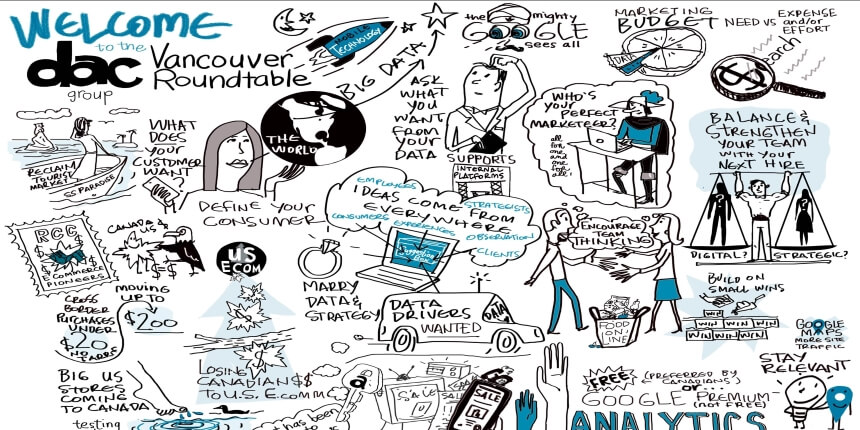 WELCOME
to the
dac
group
Vancouver
Roundtable
MOBILE
TECHNOLOGY
BIG DATA
the mighty
GOOGLE
sees all
MARKETING
BUDGET
DATA
NEED VS EXPENSE
and/or
EFFORT
Search
RECLAIM
TOURIST
MARKET
SS PARADISE
WHAT
DOES
YOUR
CUSTOMER
WANT
THE
WORLD
DEFINE YOUR
CONSUMER
ASK
WHAT
YOU
WANT
FROM
YOUR
DATA
SUPPORTS
INTERNAL
PLATFORMS
WHO'S
YOUR
PERFECT
MARKETEER?
all
for
one
and
one
for
all!
BALANCE &
STRENGTHEN
YOUR TEAM
WITH YOUR
NEXT HIRE
DIGITAL?
STRATEGIC?
EMPLOYEES
IDEAS COME FROM
STRATEGISTS
EVERYWHERE
CONSUMERS
EXPERIENCES
OBSERVATION
CLIENTS
Suggestion
Box
ENCOURAGE
TEAM
THINKING
FOOD
ON
LINE
RCC
E COMMERCE
PIONEERS
CANADA
VS
US
US
E.COM
CROSS
BORDER
PURCHASES
UNDER
$20
MOVING
UP TO
$200
MARRY
DATA &
STRATEGY
DATA
DRIVERS
WANTED
DATA
BUILD ON
SMALL WINS
WIN WIN WIN
WIN WIN WIN WIN
GOOGLE
MAPS
MORE SITE
TRAFFIC
BIG US
STORES
COMING
TO CANADA
testing
LOSING
CANADIAN $$
TO U.S. E.COMM
SALE
FREE (PREFERRED BY
CANADIANS)
OR...
GOOGLE PREMIUM
(NOT FREE)
ANALYTICS
STAY
RELEVANT